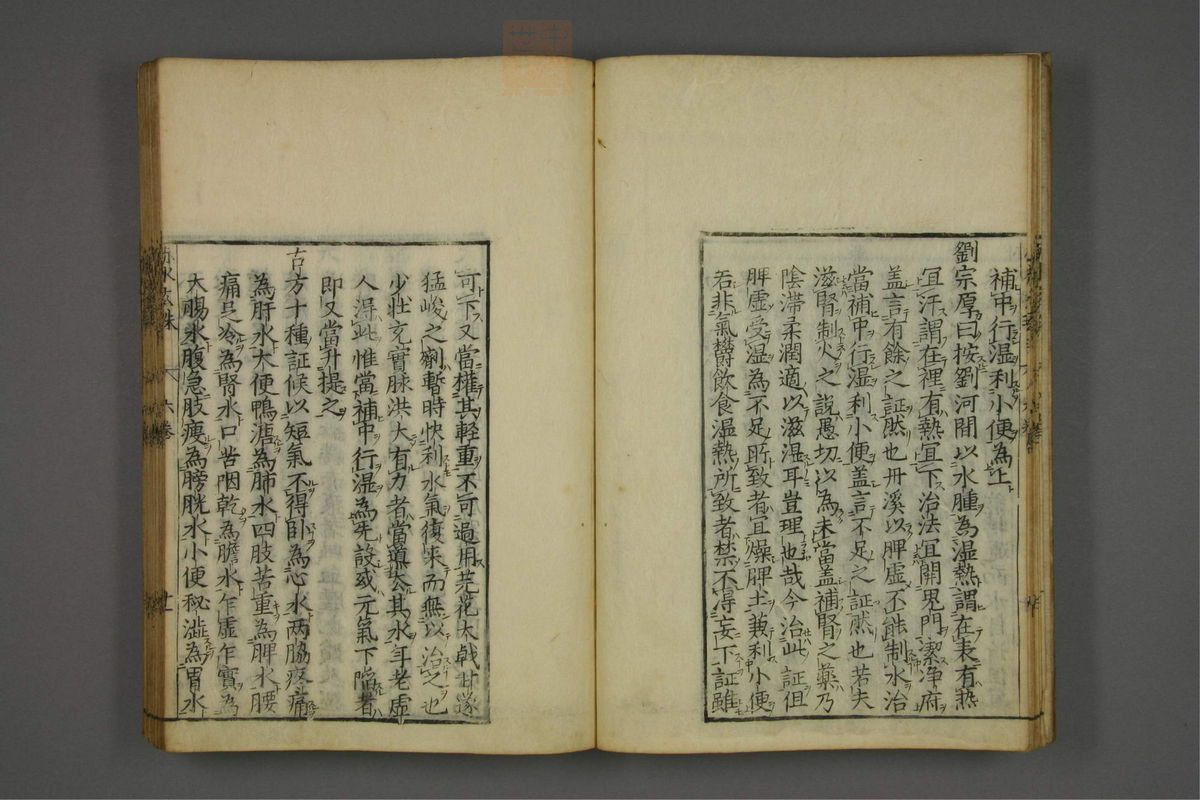 補中行湿利小便為上
劉宗厚曰按劉河間以水腫為湿熱謂在表有熱
宜汗謂在裡有熱宜下治法宜開鬼門潔浄府
盖言有餘之証然也丹溪以脾虚不能制水治
當補中行湿利小便盖言不足之証然也若夫
滋腎制火之説愚切以為未當盖補腎之藥乃
陰滞柔潤適以滋湿耳豈理也哉今治此証但
脾虚受湿為不足所致者宜燥脾土兼利小便
若非氣欝飲食湿熱所致者禁不得妄下証雖
可下又當権其軽重不可過用芫花大戟甘遂
猛峻之劑暫時快利水氣復来而無以治之也
少壮充實脉洪大有力者當導去其水年老虚
人得此惟當補中行湿為先設或元氣下陥者
即又當升提之
古方十種証候以短氣不得卧為心水両脇疼痛
為肝水大便鴨溏為肺水四肢苦重為脾水腰
痛足冷為腎水口苦咽乾為膽水乍虚乍實為
大腸水腹急肢痩為膀胱水小便秘澁為胃水
六巻